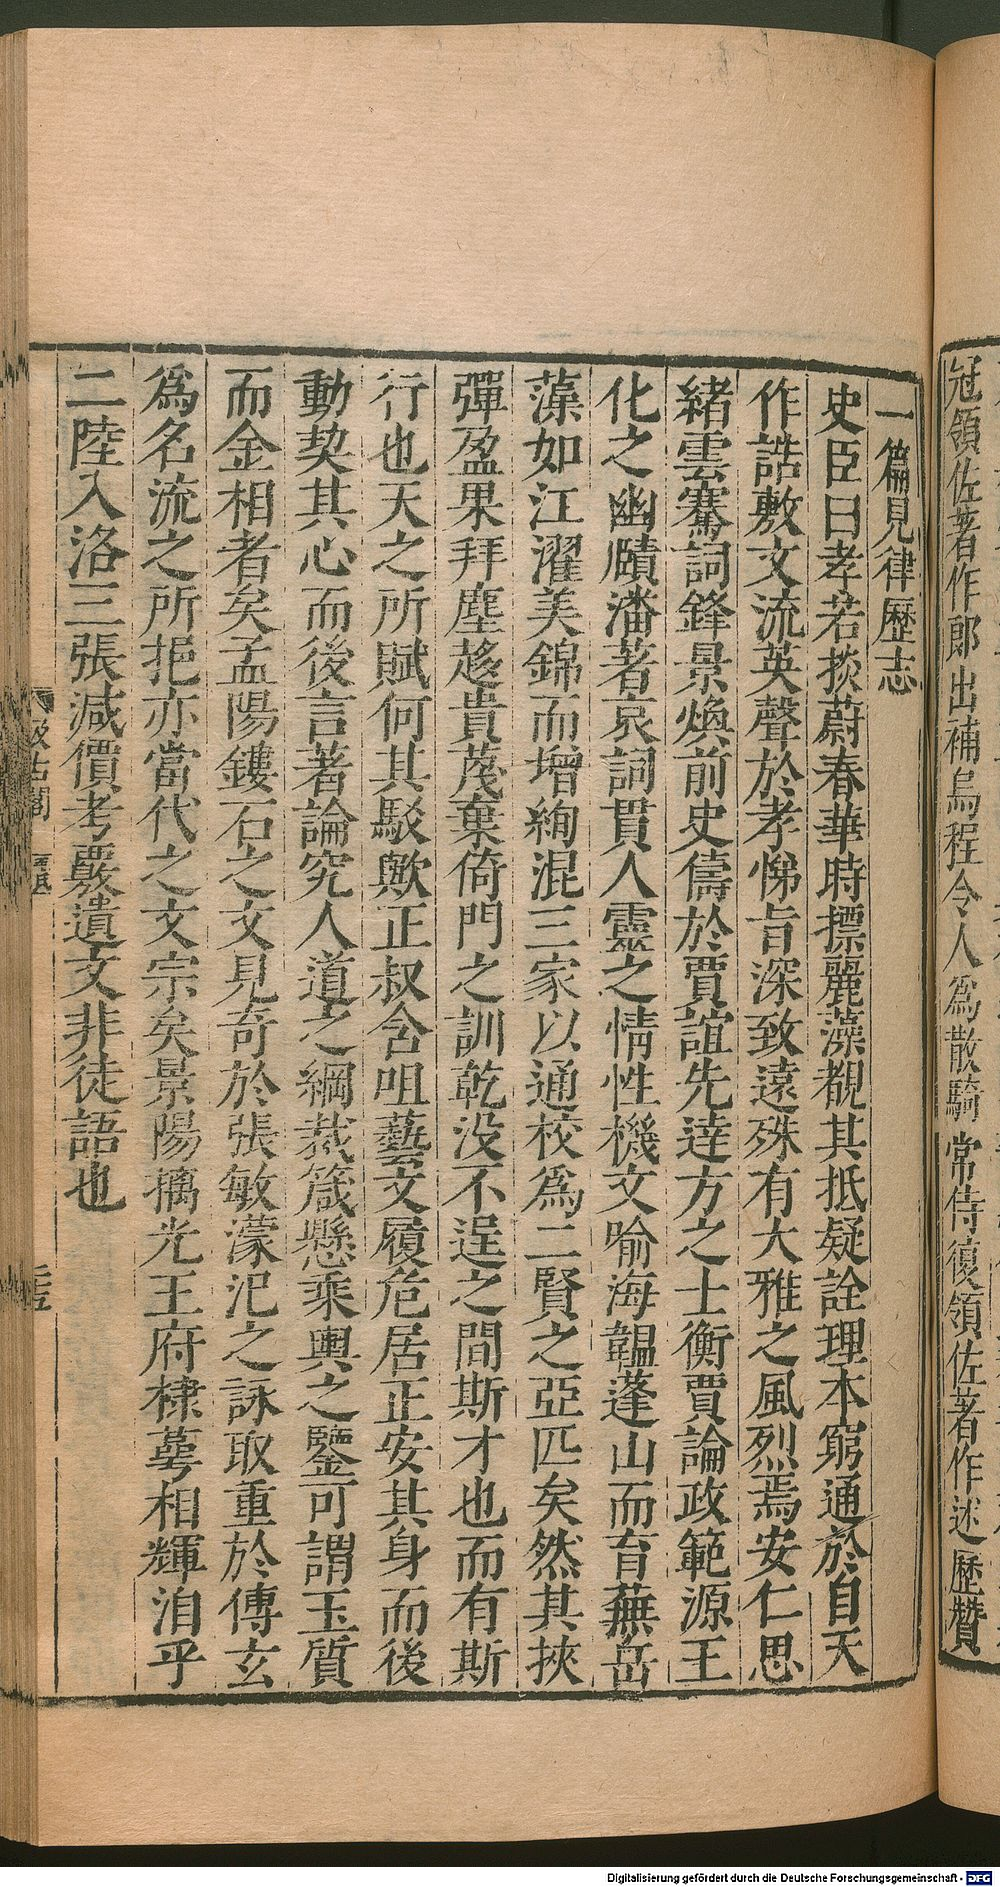 冠領佐著作郎出補烏程令人爲散騎常侍復領佐著作述歷贊
一篇見律歷志
史臣曰孝若掞蔚春華時摽麗藻覩其抵疑詮理本窮通於自天
作誥敷文流英聲於孝悌旨深致遠殊有大雅之風烈焉安仁思
緒雲騫詞鋒景煥前史儔於賈誼先達方之士衡賈論政範源王
化之幽賾潘著哀詞貫人靈之情性機文喻海韞蓬山而育蕪岳
藻如江濯美錦而增絢混三家以通校爲二賢之亞匹矣然其挾
彈盈果拜塵趍貴蔑棄倚門之訓乾没不逞之間斯才也而有斯
行也天之所賦何其駁歟正叔含咀藝文履危居正安其身而後
動契其心而後言著論究人道之綱裁箴懸乘輿之鑒可謂玉質
而金相者矣孟陽鏤石之文見奇於張敏濛汜之詠取重於傅玄
爲名流之所挹亦當代之文宗矣景陽摛光王府棣萼相輝洎乎
二陸入洛三張減價考覈遺文非徒語也
汲古閣
Digitalisierung gefördert durch die Deutsche Forschungsgemeinschaft - DFG